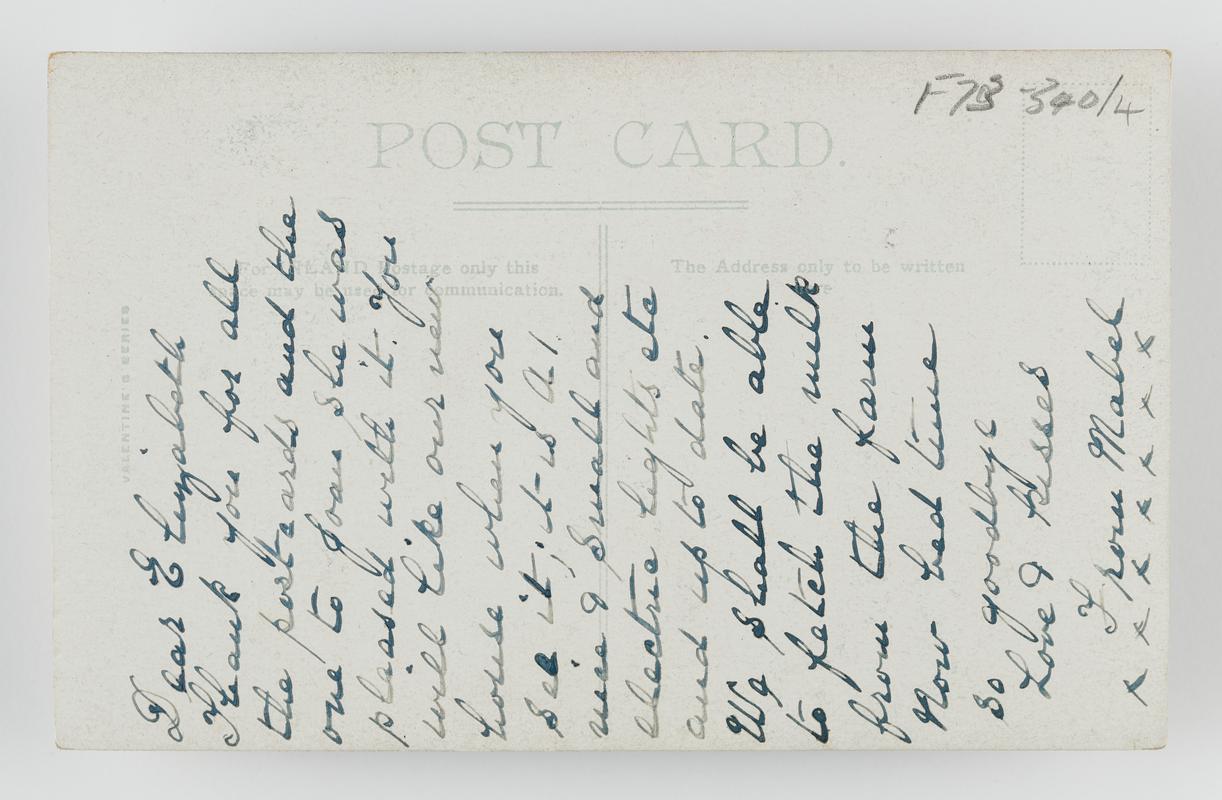 F73 340/4
POST CARD.
For INLAND Postage only this
space may be used for communication.
The Address only to be written
here
VALENTINE'S SERIES
Dear Elizabeth
Thank you for all
the postcards and the
one to Joan She was
pleased with it. You
will like our new
house when you
see it; it is A1.
nice & Small and
electric lights etc
and up to date.
We shall be able
to fetch the milk
from the farm
Now bed time
so goodbye
Love & Kisses
From Mabel
x x x x x x x